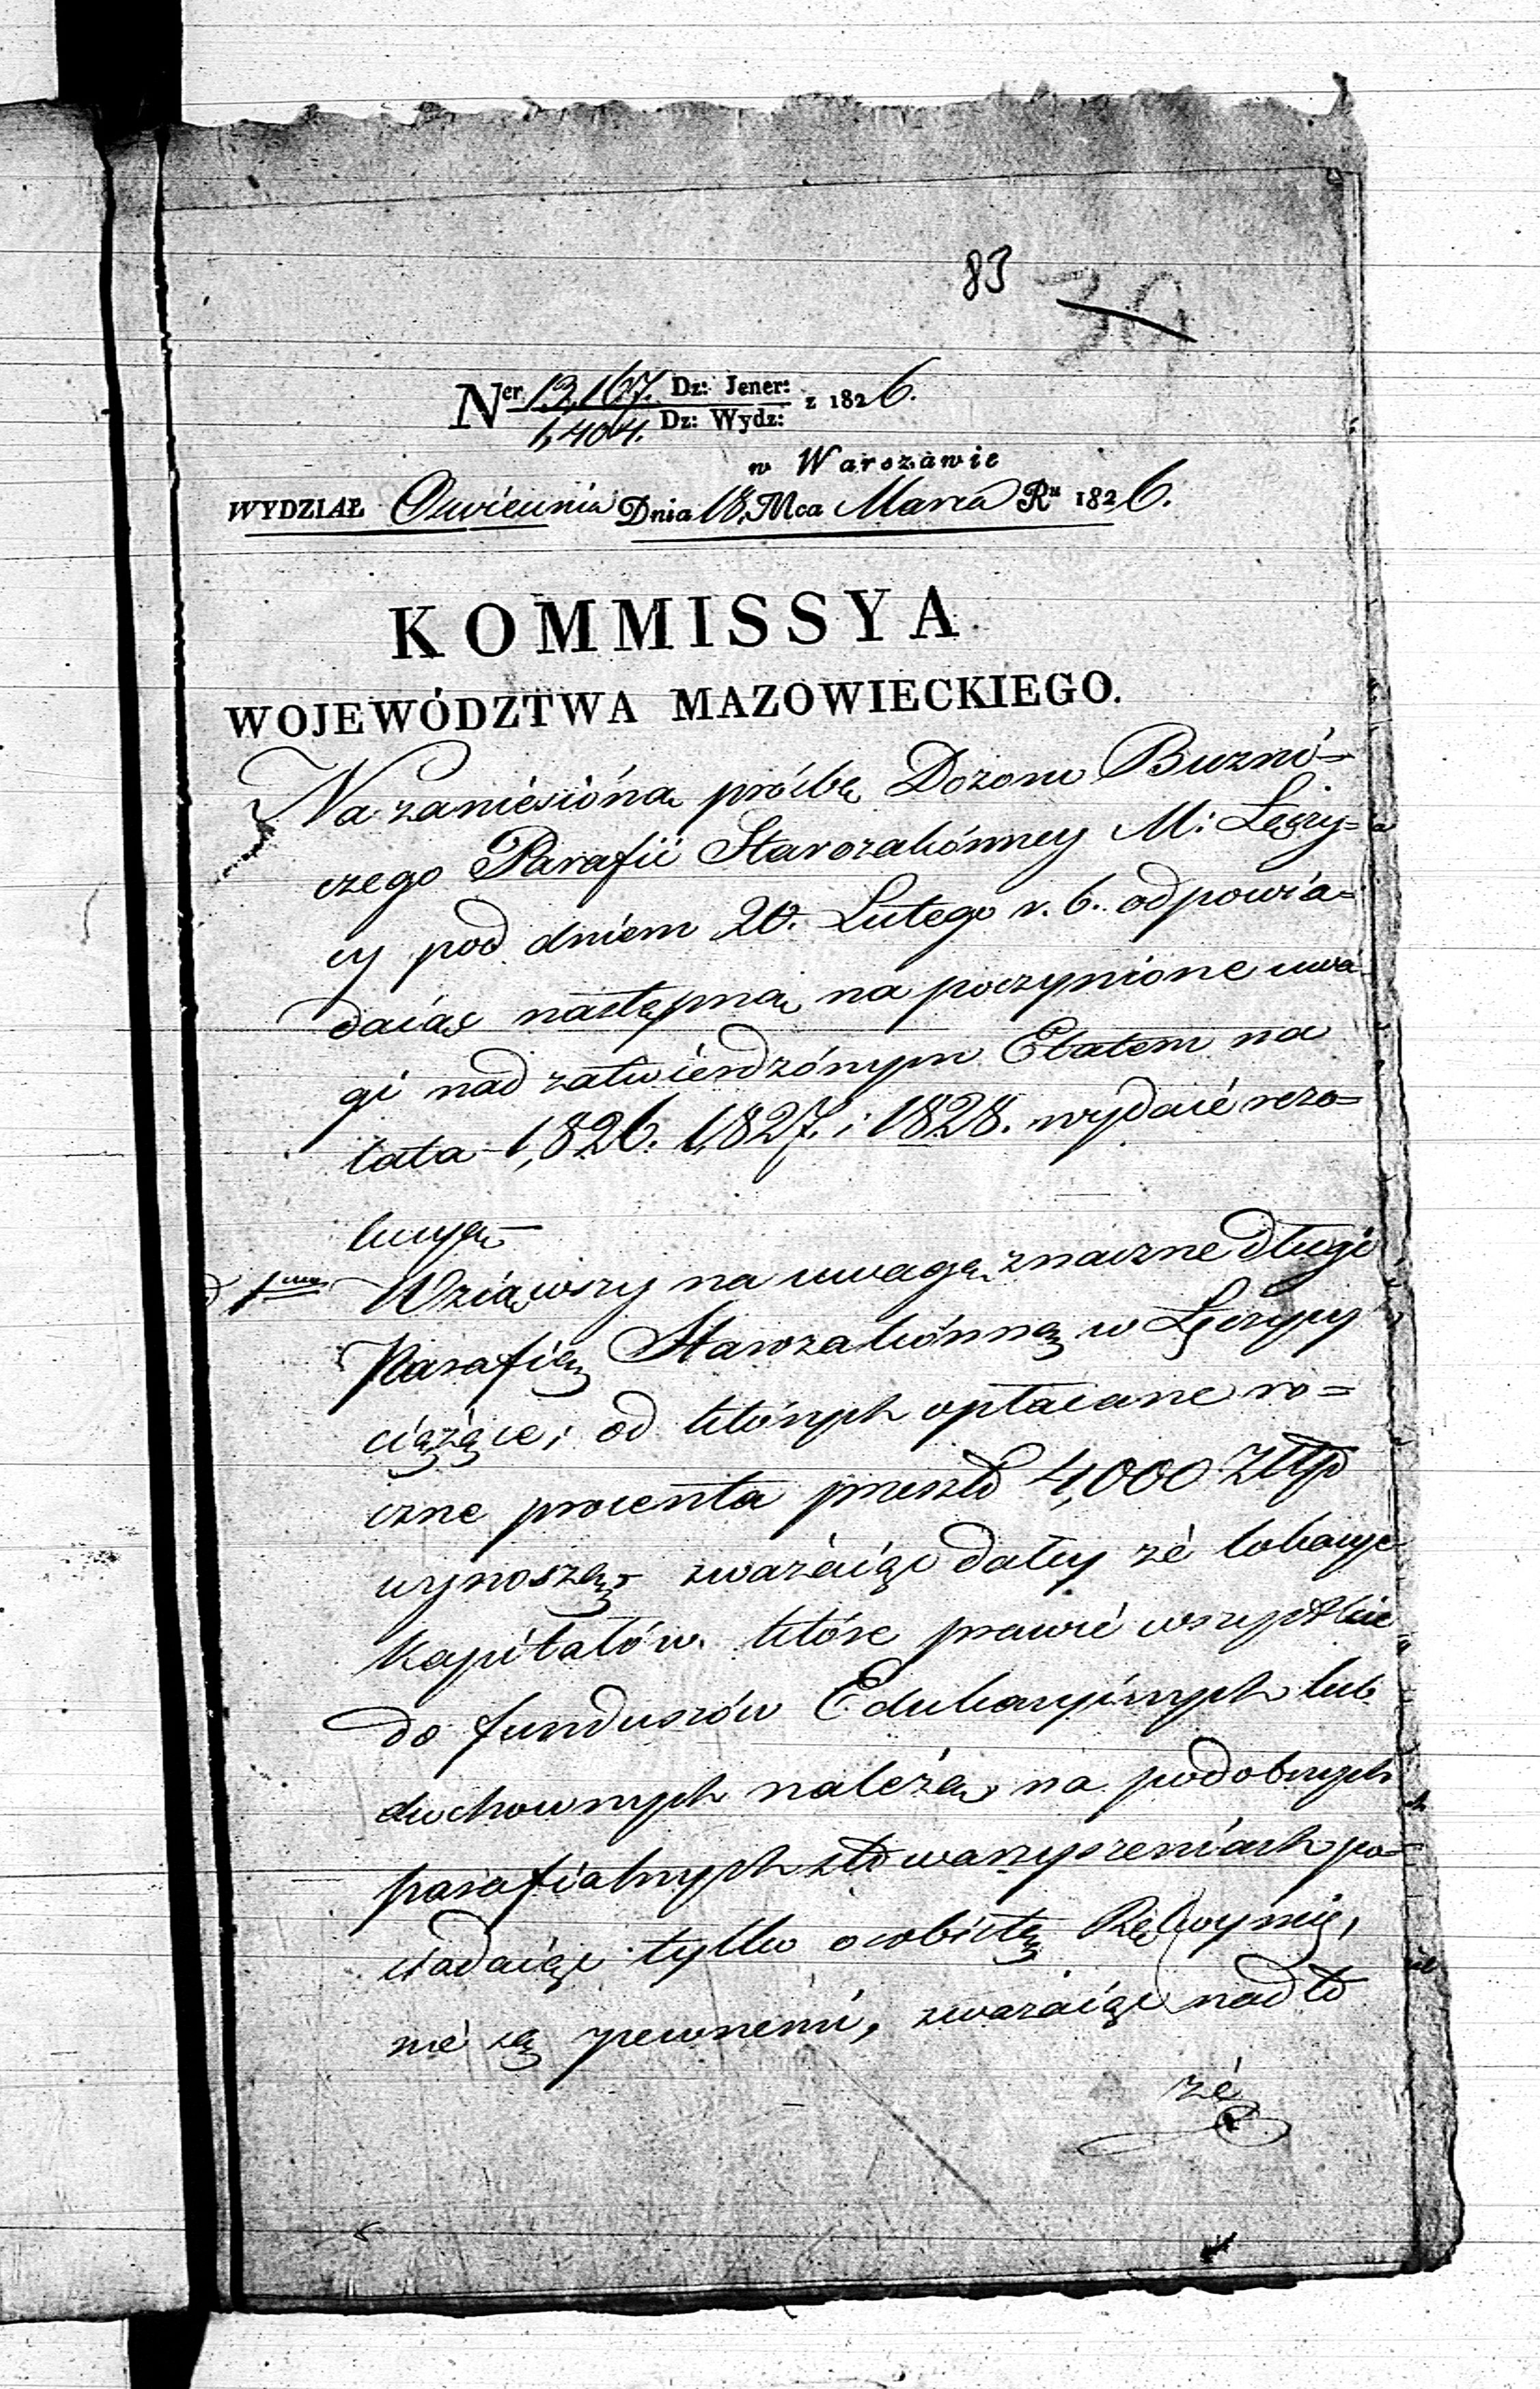 83 39
Ner 13,167. Dz: Jener: z 1826.
1,404. Dz: Wydz:
w Warszawie
WYDZIAŁ Oswiecenia Dnia 18, Mca Marca Ru 1826.
KOMMISSYA
WOJEWÓDZTWA MAZOWIECKIEGO.
Na zaniesióną próśbę Dozoru Buzni=
czego Parafii Starozakónney M: Łęczy=
cy pod dniem 20. Lutego r. b. odpowia=
daiąc następną na poczynione uwa
gi nad zatwierdzónym Etatem na
lata 1,826. 1,827. i 1828. wydaie rezo=
lucyą
1mo Wziąwszy na uwagę znaczne długi
Parafią Starozakónną w Łęczycy
ciążące, od których opłacane ro=
czne procenta przeszło 4,000 Złtp
wynoszą, zważaiąc daley że lokacye
Kapitałów które prawie wszystkie
do funduszów Edukacyinych lub
duchownych należą, na podobnych
parafialnych stowarzyszeniach po=
siadaiąc tylko osobistą Rękoymię,
nie są pewnemi, zważaiąc nadto
że